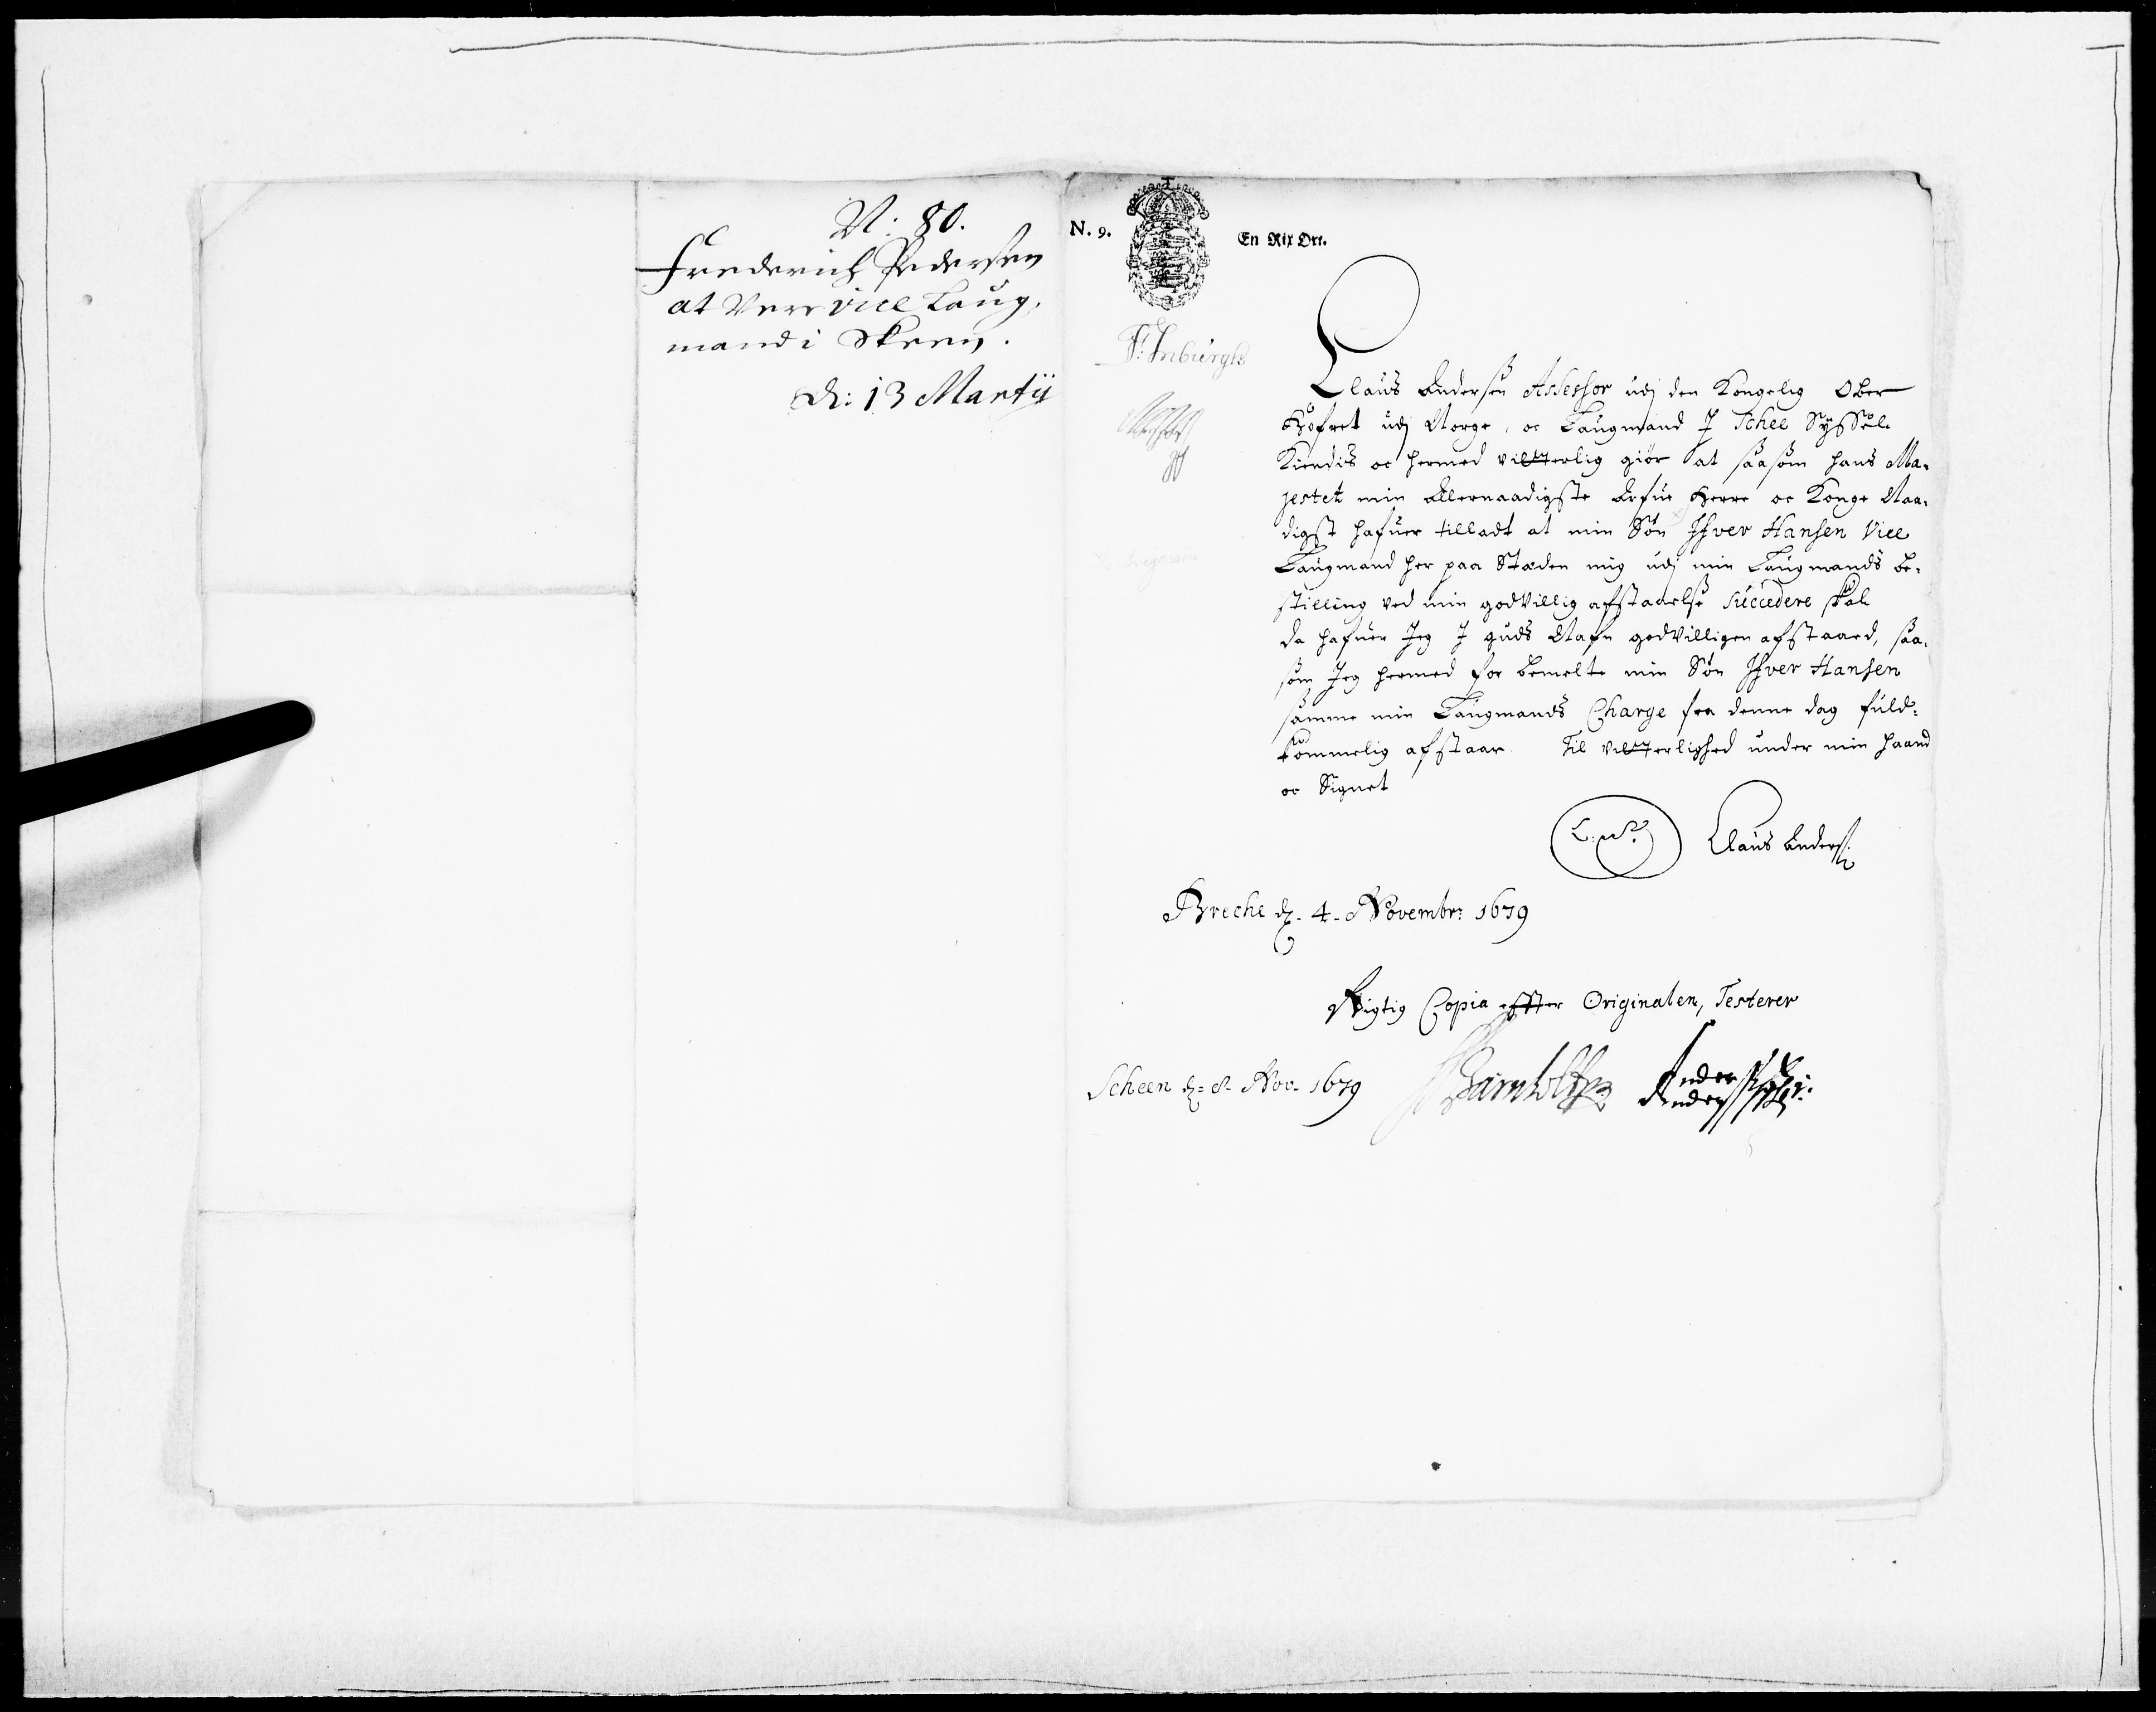 N: 80.
Frederich Pedersen
at Vere vice Laug,
mand i Skeen.
D: 13 Martij
N. 9.
En Rix Ort.
Claus Andersen Assessor udj den Kongelig Ober
Hofret udj Norge, oc Laugmand J Schee Syssel.
Kiendis oc hermed vitterlig giör at saasom hans Ma-
jestet min Allernaadigste Arfue Herre oc Konge Naa-
digst hafuer tilladt at min Søn Ifver Hansen Vice
Laugmand her paa Stæden mig udj min Laugmands be-
stilling ved min godvillig afstaaelse succedere skal
da hafuer Jeg J guds Nafn godvilligen afstaaed, saa-
som Jeg hermed for bemelte min Søn Ifver Hansen
samme min Laugmands Charge fra denne dag fuld-
kommelig afstaar. Til vitterlighed under min haand
oc Signet
Claus Anders:
Breche d. 4. Novembr: 1679
Rigtig Copia effter Originalen, Testerer
Scheen d: 8. Nov. 1679